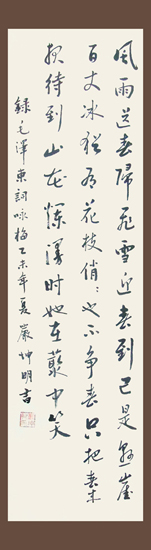 風雨送春歸飛雪迎春到已是懸崖
百丈冰猶有花枝俏〻也不争春只把春来
报待到山花爛漫时她在叢中笑
錄毛澤東詞咏梅乙未年夏嚴坤明书